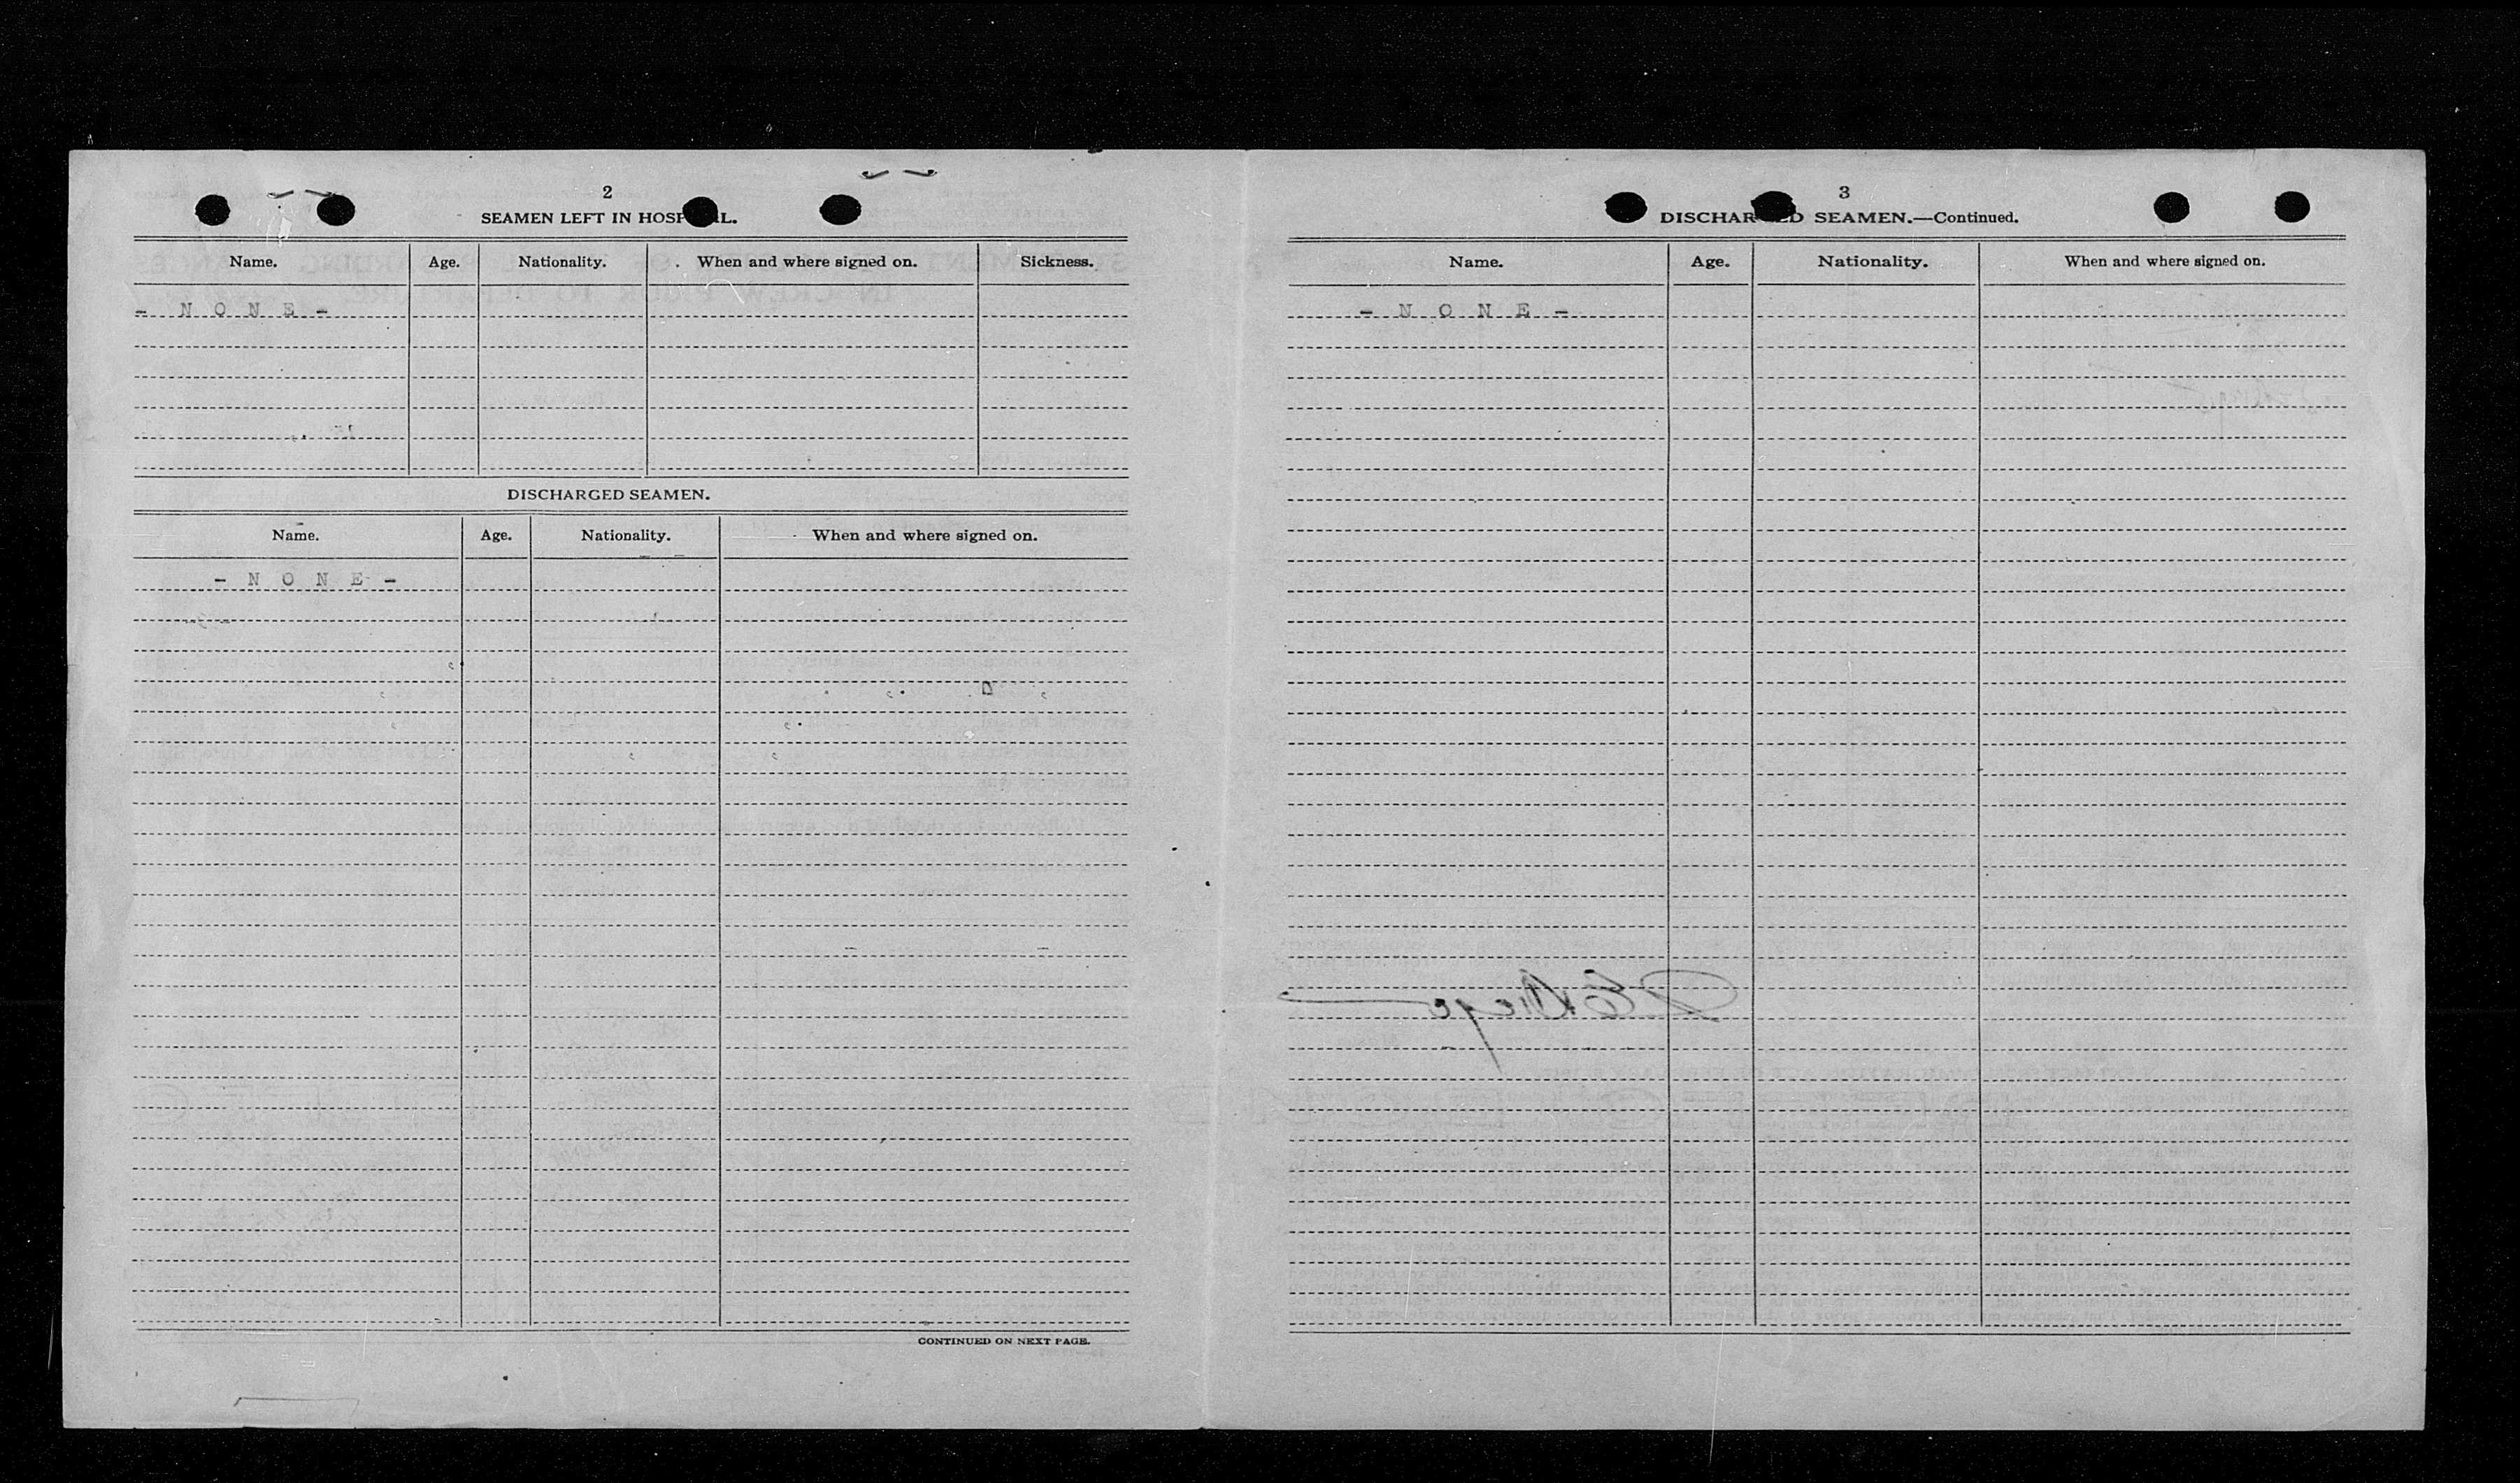 2
SEAMEN LEFT IN HOSP L.
Name. Age. Nationality. When and where signed on. Sickness.
- N O N E -
DISCHARGED SEAMEN.
Name. Age. Nationality. When and where signed on.
- N O N E -
CONTINUED ON NEXT PAGE.
3
DISCHAR ED SEAMEN.—Continued.
Name. Age. Nationality. When and where signed on.
- N O N E -